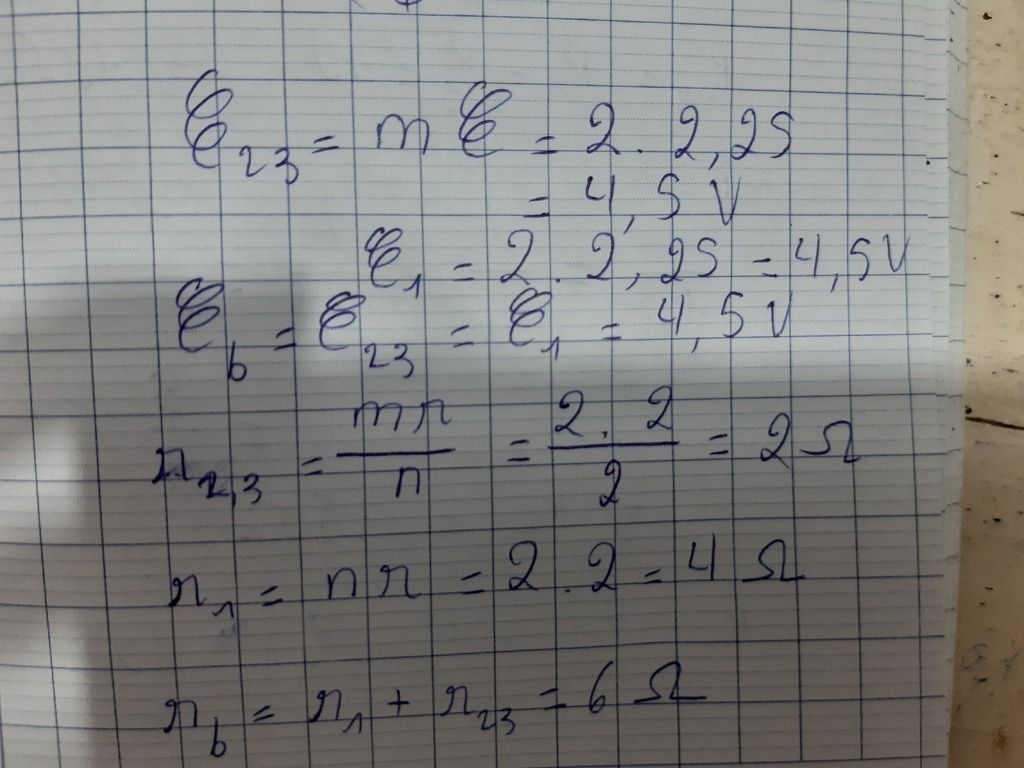 ℰ₂₃ = mℰ = 2 . 2,25
= 4,5 V
ℰ₁ = 2 . 2,25 = 4,5V
ℰb = ℰ₂₃ = ℰ₁ = 4,5V
r₂,₃ = mr/n = 2. 2/2 = 2 Ω
r₁ = nr = 2 . 2 = 4 Ω
rb = r₁ + r₂₃ = 6 Ω